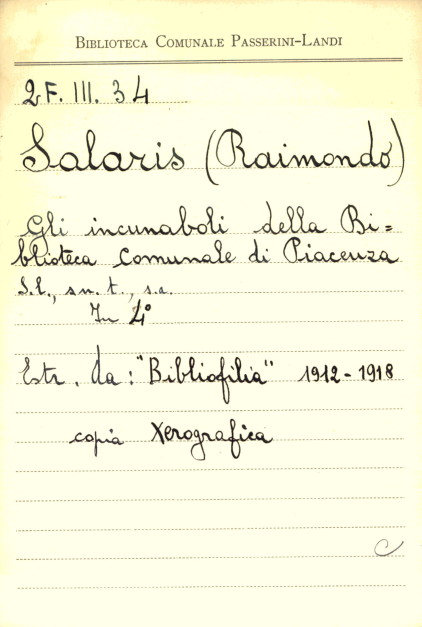 BIBLIOTECA COMUNALE PASSERINI-LANDI
2F. III. 34
Salaris (Raimondo)
Gli incunaboli della Bi=
blioteca comunale di Piacenza
S.l., sn. t., s.a.
In 4°
Estr. da: "Bibliofilia" 1912-1918
copia Xerografica
C